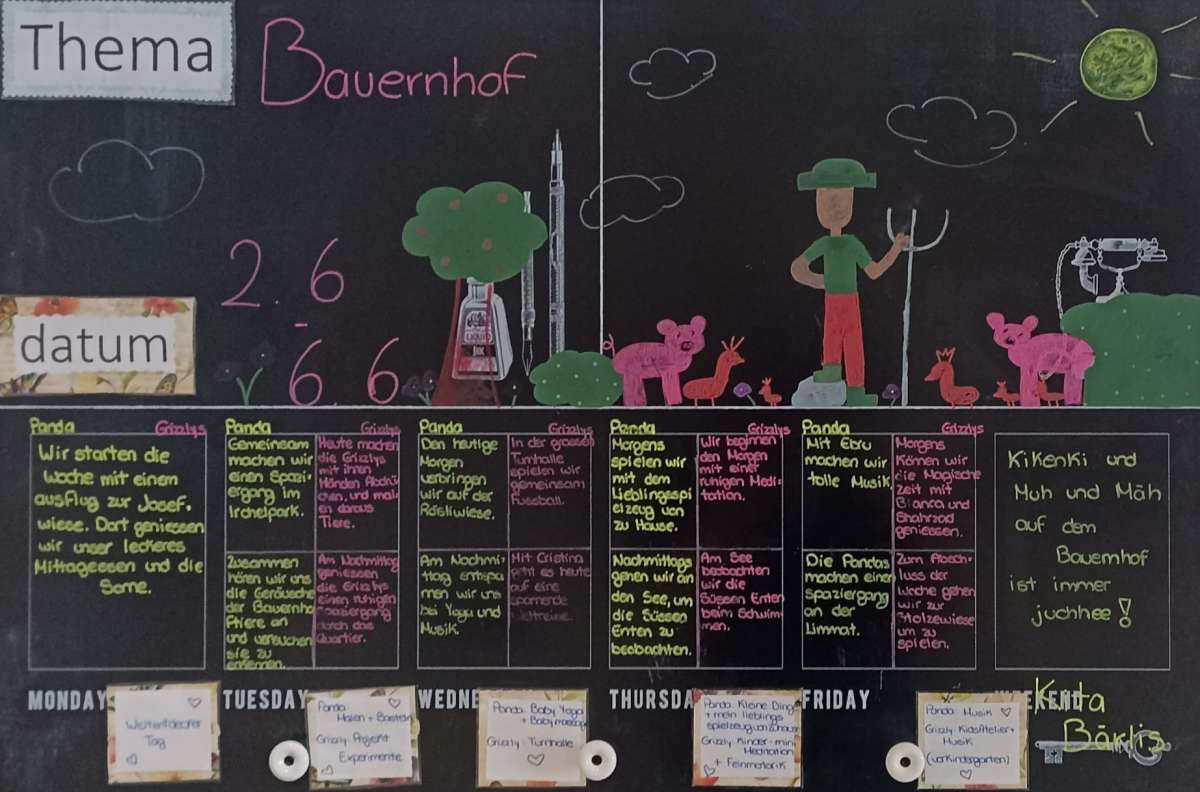 Thema
Bauernhof
2.6
-
6.6
datum
Panda
Grizzlys
Wir starten die
Woche mit einem
ausflug zur Josef.
wiese. Dort geniessen
wir unser leckeres
Mittagessen und die
Sonne.
Panda
Grizzlys
Gemeinsam
machen wir
einen Spazi-
ergang im
Irchelpark.
Heute machen
die Grizzlys
mit ihren
Händen
und
en daraus
Tiere.
Zusammen
hören wir uns
die Geräusche
der Bauernho
ftiere an
und versuchen
sie zu
erkennen.
Am Nachmittag
geniessen
die Grizzlys
einen ruhigen
Spaziergang
durch das
Quartier.
Panda
Grizzlys
Den heutige
Morgen
verbringen
wir auf der
Rösliwiese.
In der grossen
Turnhalle
spielen wir
gemeinsam
Fussball.
Am Nachmi-
ttag entspa
men wir uns
bei Yoga und
Musik.
Mit Cristina
geht es heute
auf eine
spannende
Panda
Grizzlys
Morgens
spielen wir
mit dem
Lieblingsspi
elzeug von
zu Hause.
Wir beginnen
den Morgen
mit einer
ruhigen Medi-
tation.
Nachmittags
gehen wir an
den See, um
die Süssen
Enten zu
beobachten.
Am See
beobachten
wir die
Süssen Enten
beim Schwim
men.
Panda
Grizzlys
Mit Ebru
machen wir
tolle Musik.
Morgens
Können wir
die Magische
Zeit mit
Bianca und
Shahrzad
geniessen.
Die Pandas
machen einen
spaziergang
an der
Limmat.
Zum Absch-
luss der
Woche gehen
wir zur
Stolzewiese
um zu
spielen.
Kikeriki und
Muh und Mäh
auf dem
Bauernhof
ist immer
juchhee!
MONDAY
TUESDAY
WEDNE
THURSDAY
FRIDAY
WEEKEND
Kita
Bärlis
Weltentdecker
Tag
Panda:
Malen + Basteln
Grizzly: Projekt
Experimente
Panda: Baby Yoga
+ Babymassage
Grizzly: Turnhalle
Panda: Kleine Dinge
+ mein lieblings
spielzeug von zuhause
Grizzly: Kinder-mini
Meditation
+ Feinmotorik
Panda: Musik
Grizzly: KidsAtelier +
Musik
(vorkindergarten)